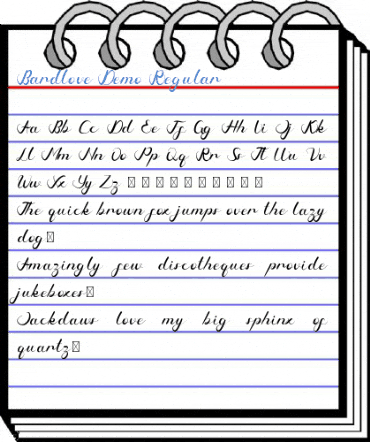 Bardlove Demo Regular
Aa Bb Cc Dd Ee Ff Gg Hh Ii Jj Kk
Ll Mm Nn Oo Pp Qq Rr Ss Tt Uu Vv
Ww Xx Yy Zz □ □ □ □ □ □ □ □ □ □
The quick brown fox jumps over the lazy
dog□
Amazingly few discotheques provide
jukeboxes□
Jackdaws love my big sphinx of
quartz□